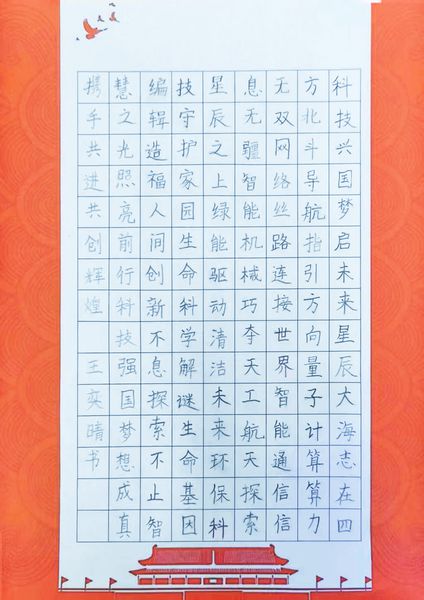 科技兴国梦启未来星辰大海志在四
方北斗导航指引方向量子计算算力
无双网络丝路连接世界智能通信信
息无疆智能机械巧夺天工航天探索
星辰之上绿能驱动清洁未来环保科
技守护家园生命科学解谜生命基因
编辑造福人间创新不息探索不止智
慧之光照亮前行科技强国梦想成真
携手共进共创辉煌 王奕晴书